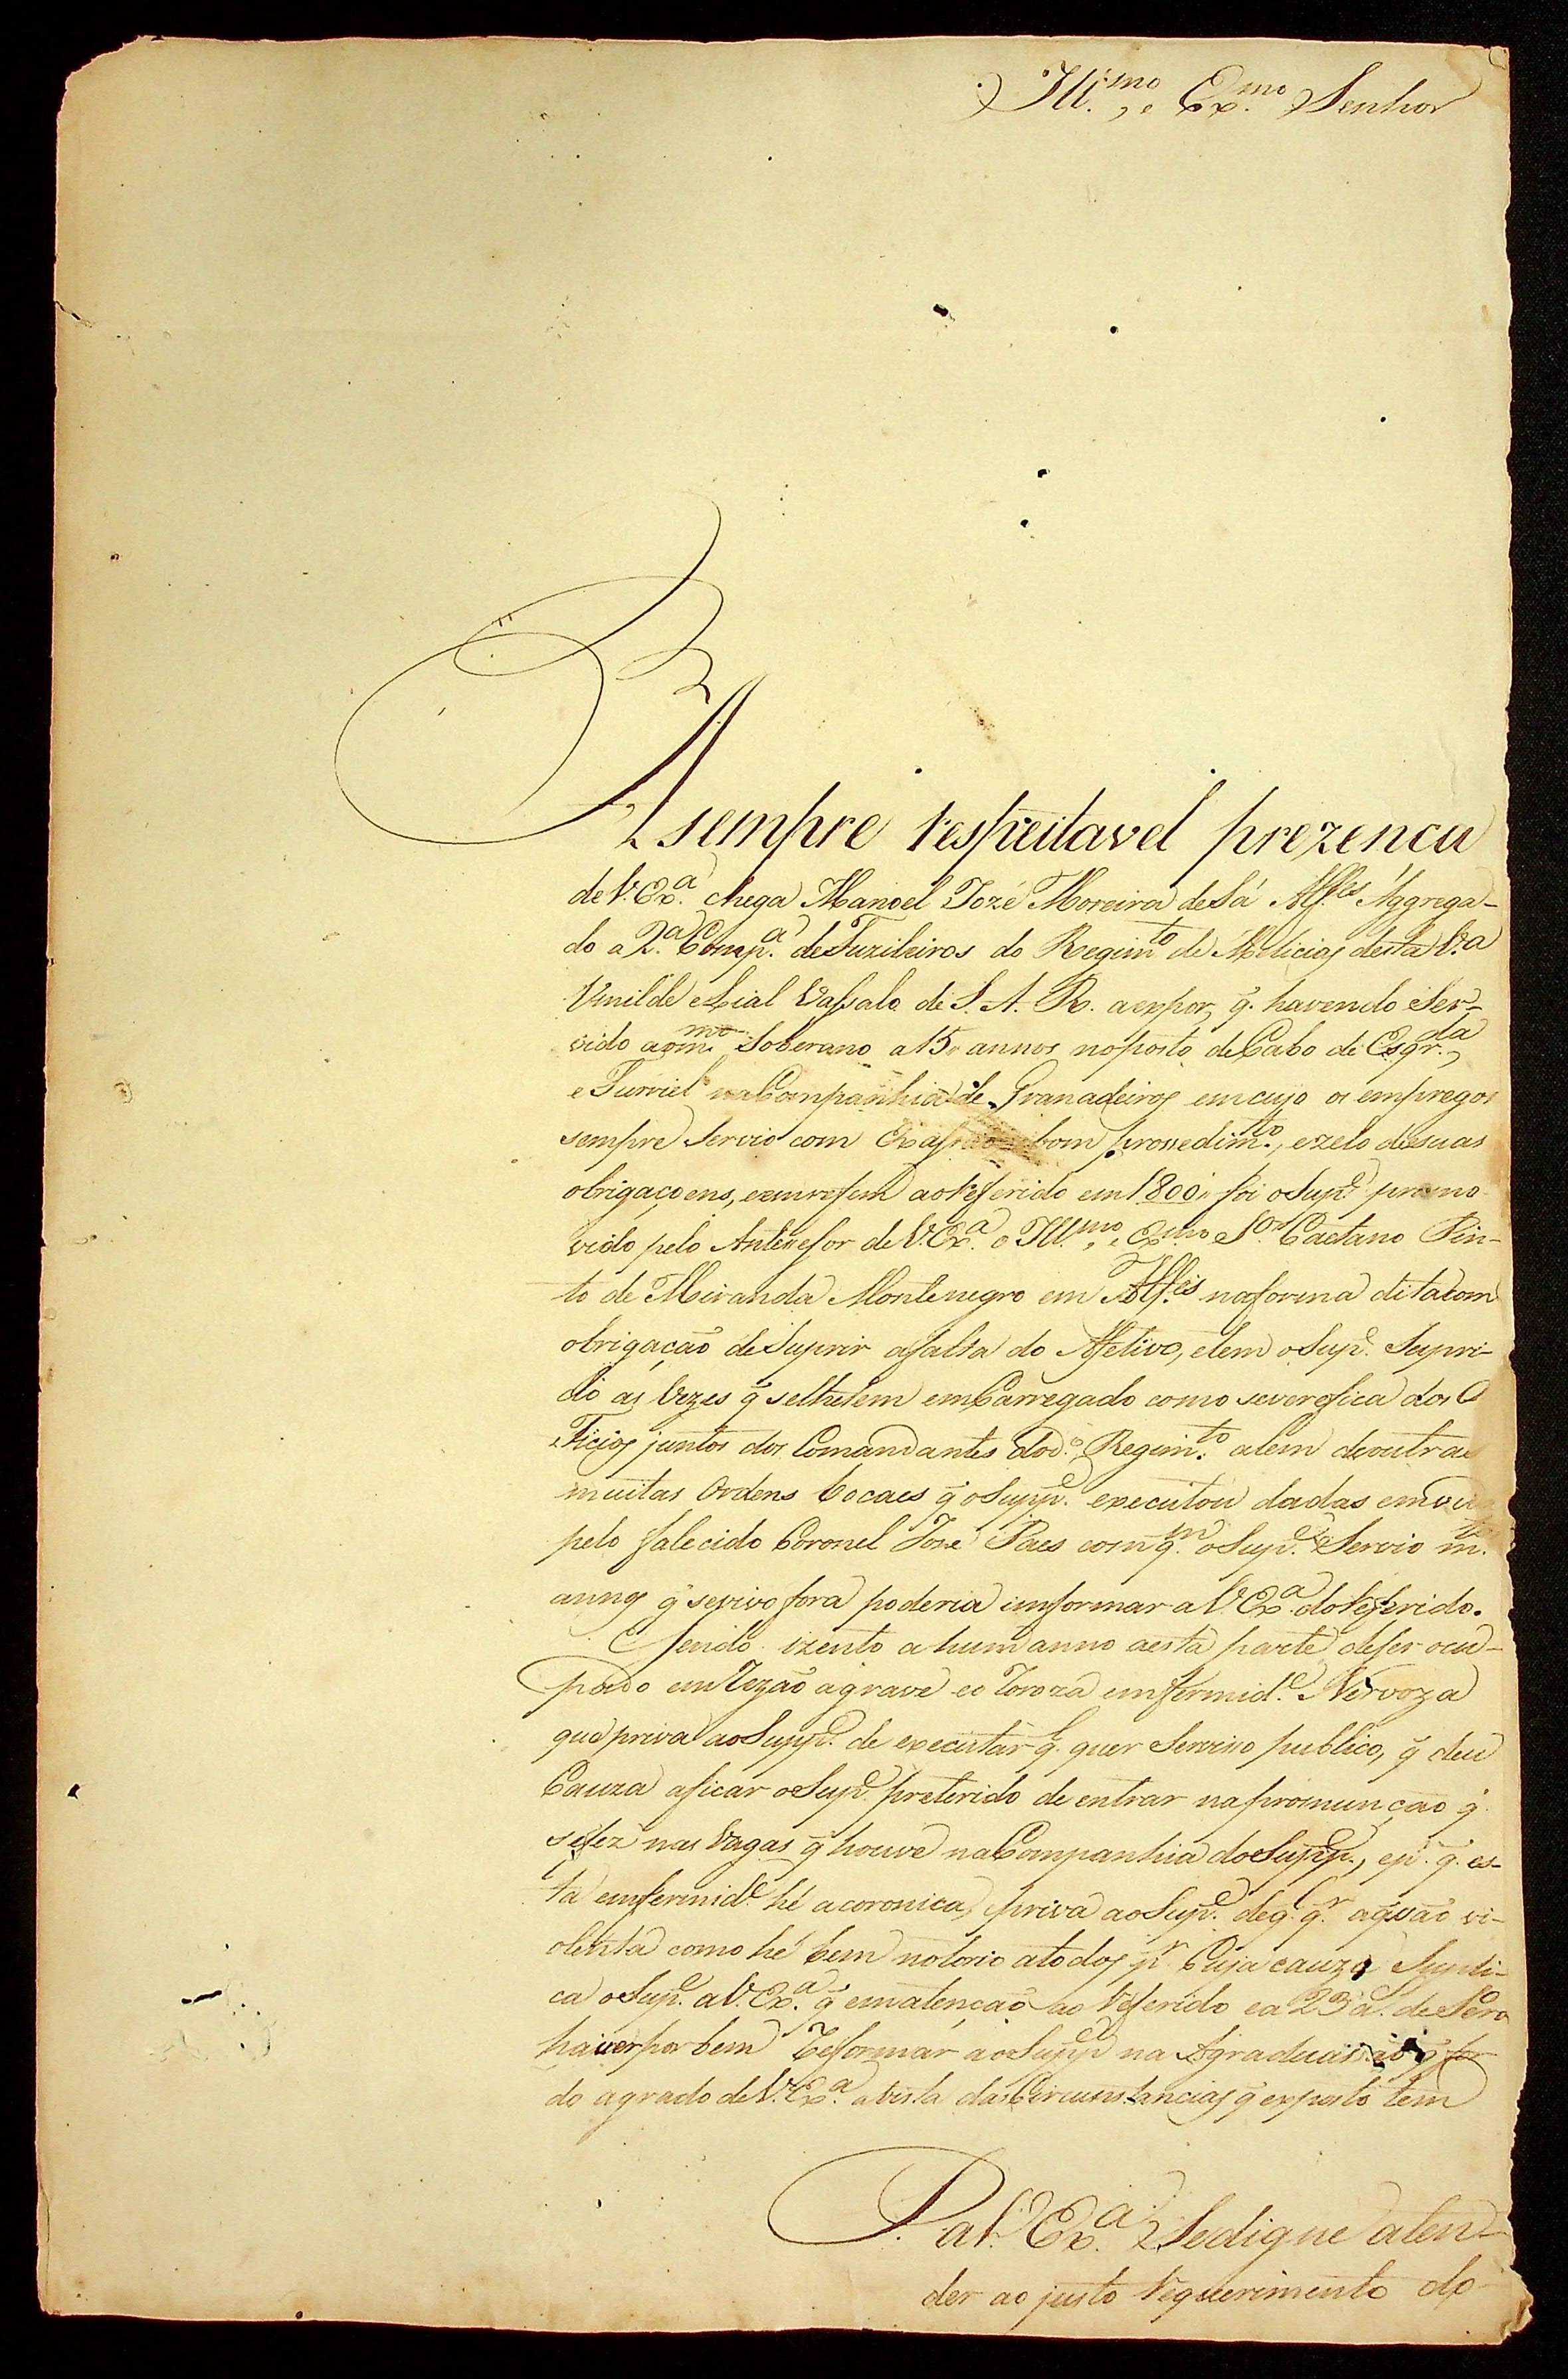 Ill.mo, e Ex.mo Senhor
A sempre respeitavel prezenca
de V. Ex.a chega Manoel Jozé Moreira de Sá Alf.es Aggrega-
do a 2.a Comp.a de Fuzileiros do Regim.to de Milicias desta V.a
Umilde e Lial Vassalo de S. A. R. a expor, q. havendo Ser-
vido ao m.mo Soberano a 15 annos no posto de Cabo de Esqr.da,
e Furriel na Companhia de Granadeiros em cujo os empregos
sempre Servio com bom prossedim.to, e zelo de suas
obrigaçoens, ao referido em 1800 foi o Sup.e promo
vido pelo Antessesor de V. Ex.a o Ill.mo, e Ex.mo S.or Caetano Pin-
to de Miranda Montenegro em Alf.es na forma dita com
obrigação de Suprir a falta do Afetivo, e tem o Sup.e Supri-
do as Vezes q̃ se lhe tem em Carregado como se verefica dos O
Ficios juntos dos Comandantes do d.o Regim.to alem de outras
muitas Ordens Bocaes q̃ o Supp.e executou dadas em
pelo falecido Coronel Joze Paes com q.m o Sup.e Servio m.tos
annos q̃ se vivo fora poderia imformar a V. Ex.a do referido.
E sendo izento a hum anno a esta parte de ser ocu-
pado em rezão a grave e enfermid.e Nervoza
que priva ao Supp.e de executar q.l quer Serviso publico, q̃ deu
Cauza a ficar o Sup.e preterido de entrar na promunção q̃
se fez nas Vagas q̃ houve na Companhia do Supp.e, e p.r q. es-
ta emfermid.e hé a coronica, e priva ao Sup.e de q.l q.r aqsão vi-
olenta como hé bem notorio a todos p.r Cuja cauza Supli-
ca o Sup.e a V. Ex.a q̃ em atenção ao referido e a 23 a.s de Serv
haver por bem reformar ao Supp.e na Agraduassão q̃ for
do agrado de V. Ex.a a vista das Circunstancias q̃ exposto tem
P. a V. Ex.a Se digne aten-
der ao justo requerimento do